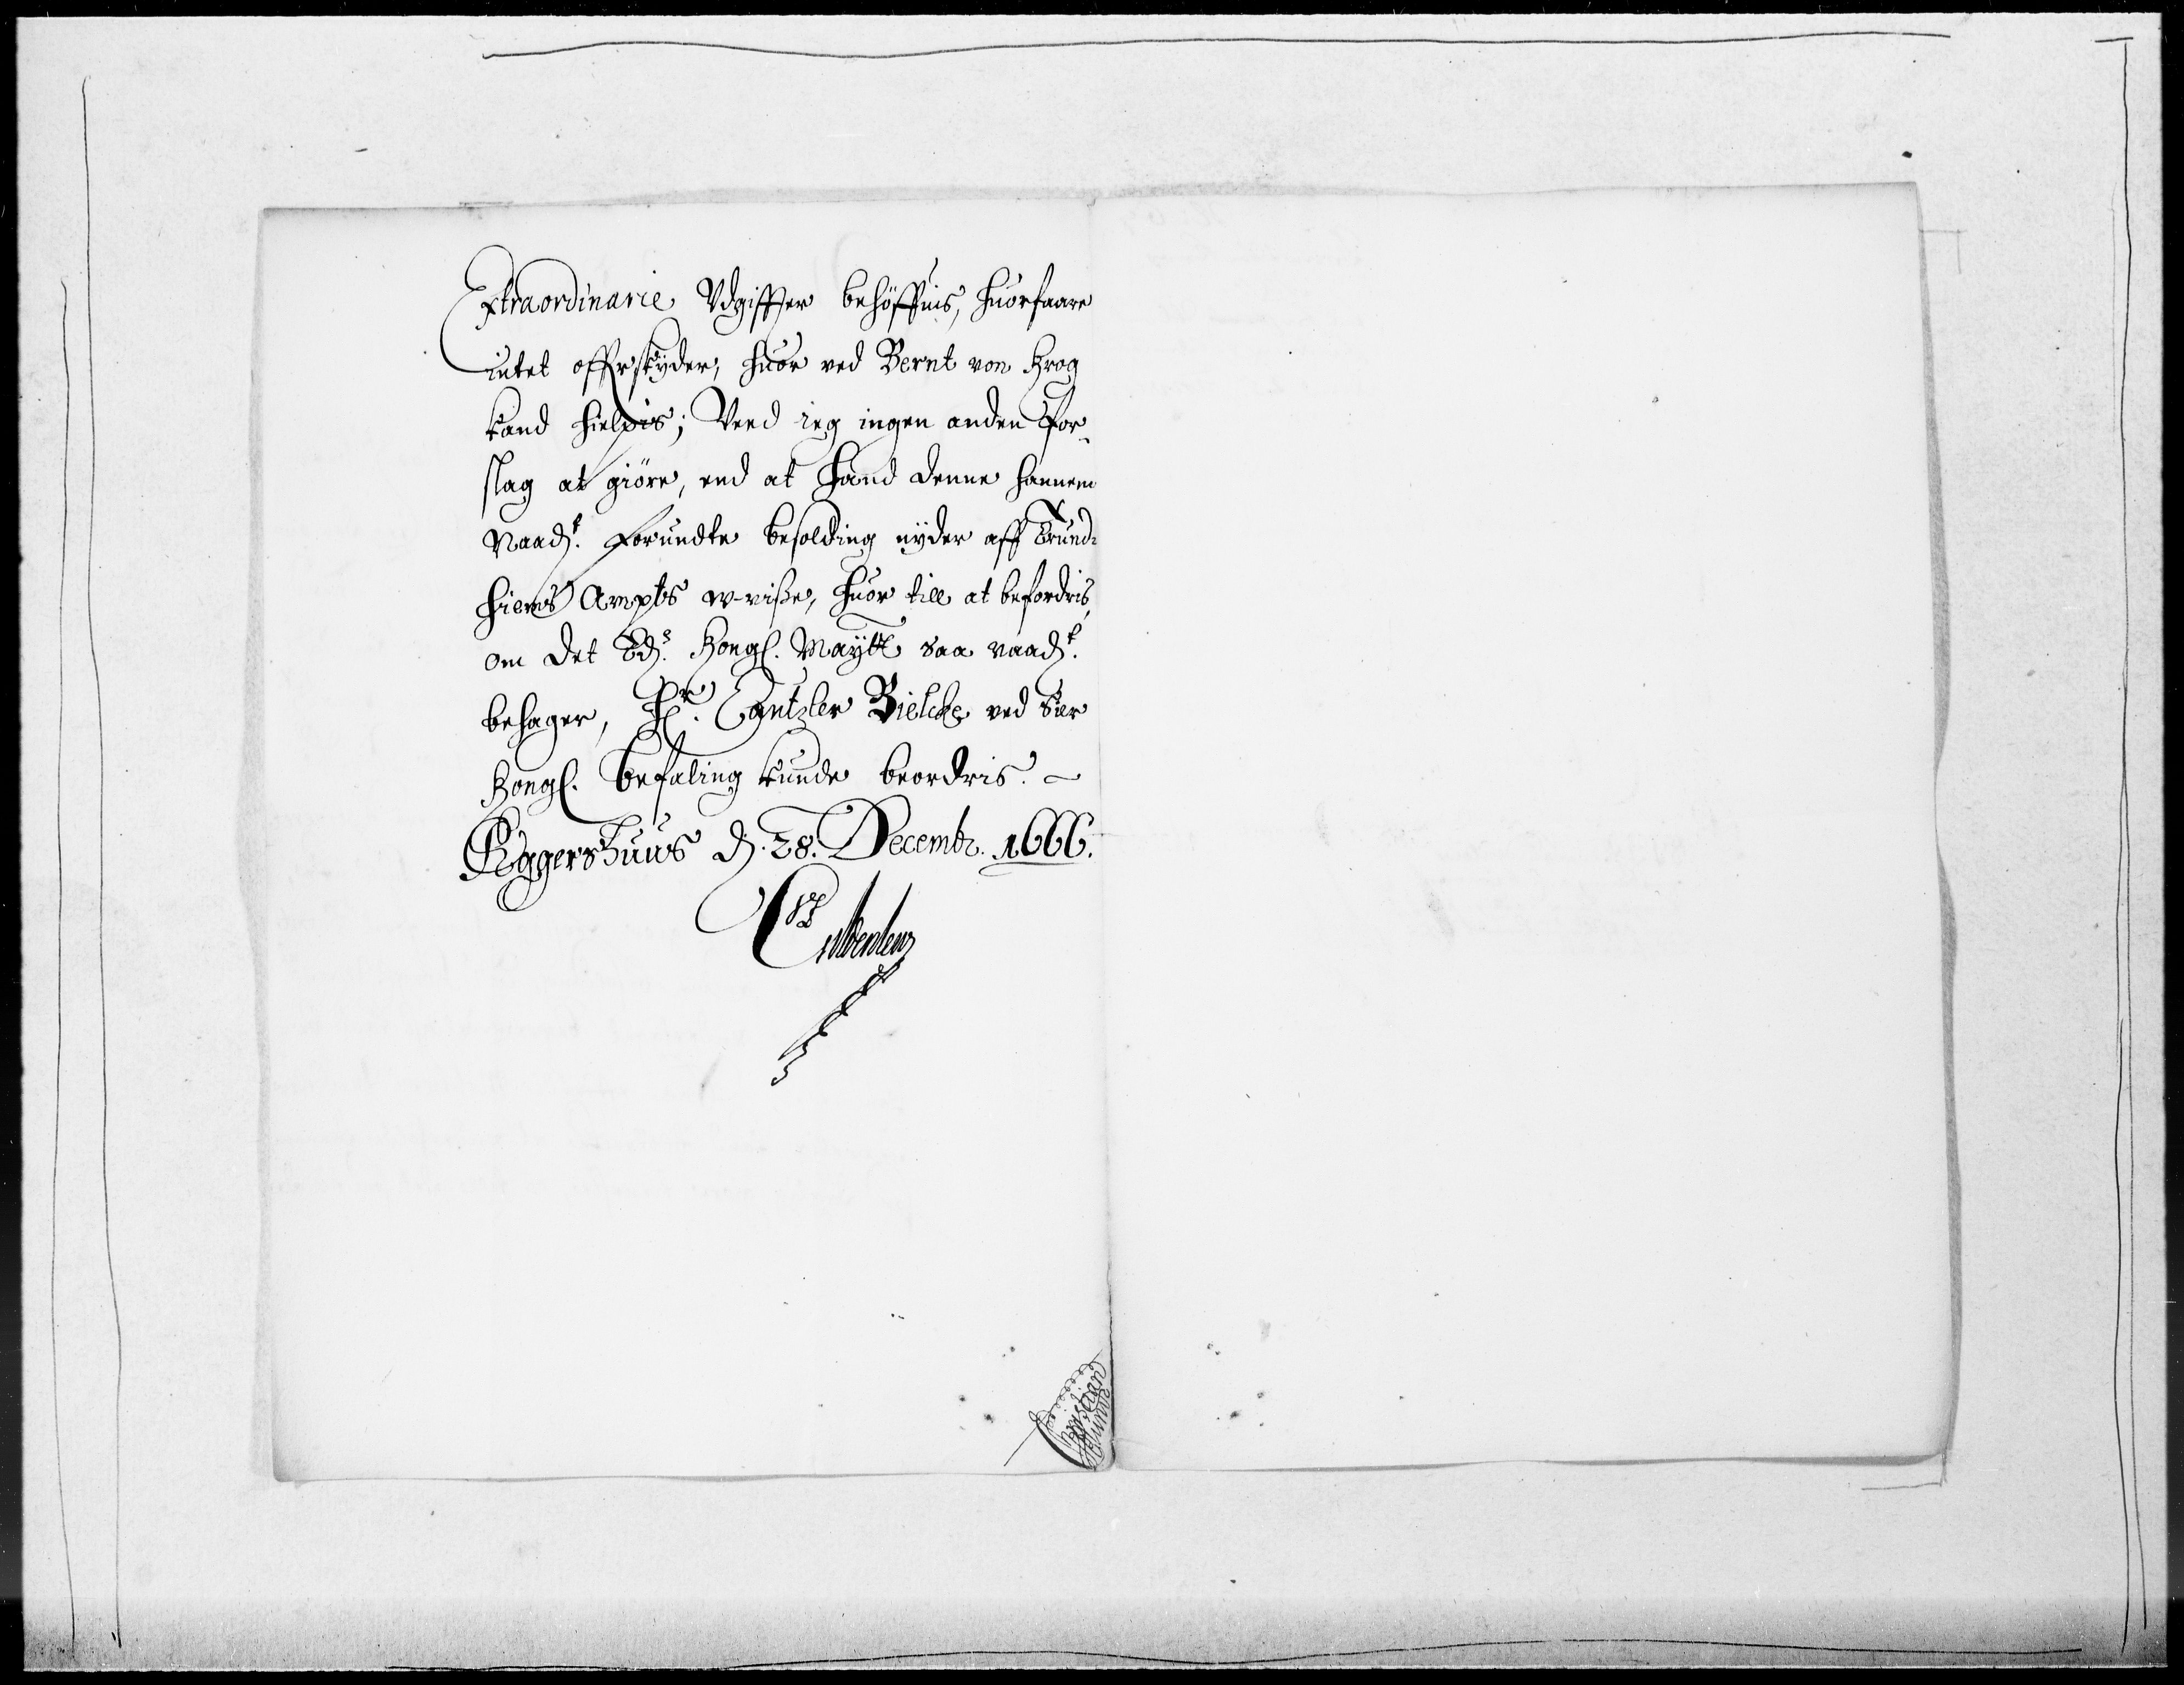 Extraordinarie Vdgiffter behøffuis, huorfaare
intet offrskyder, huor ved Bernt von Krog
kand hielpis; Veed ieg ingen anden for-
slag at giöre, end at hand denne hannem
Naadst. forundte besolding nyder aff Trund-
hiems Ampts w-viße, huor till at befordris,
om det Eds. Kongl. Maytt saa naadst.
behager, Hr. Cantzler Bielche ved dær
Kongl. befaling kunde beordris. -
Aggershuus d. 28. Decemb. 1666.
Christian